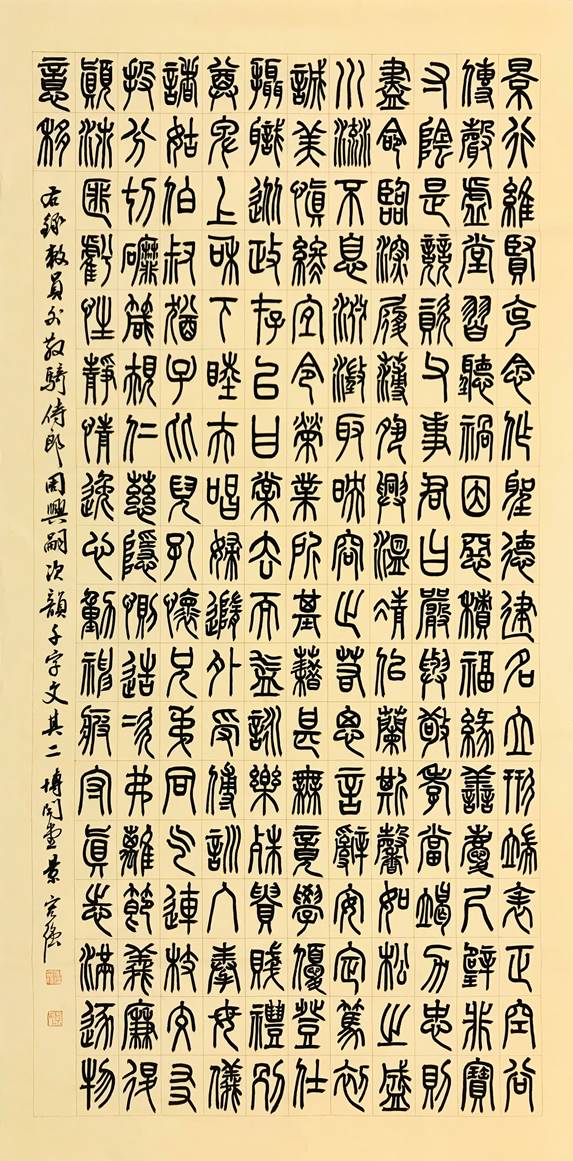 景行維賢克念作聖德建名立形端表正空谷
傳聲虛堂習聽禍因惡積福緣善慶尺璧非寶
寸陰是競資父事君曰嚴與敬孝當竭力忠則
盡命臨深履薄夙興溫凊似蘭斯馨如松之盛
川流不息淵澂取映容止若思言辭安定篤初
誠美慎終宜令榮業所基藉甚無竟學優登仕
攝職從政存以甘棠去而益詠樂殊貴賤禮別
尊卑上和下睦夫唱婦隨外受傅訓入奉母儀
諸姑伯叔猶子比兒孔懷兄弟同气連枝交友
投分切磨箴規仁慈隱惻造次弗離節義廉退
顛沛匪虧性靜情逸心動神疲守真志滿逐物
意移
右錄敕員外散騎侍郎周興嗣次韻千字文其二 博堂景